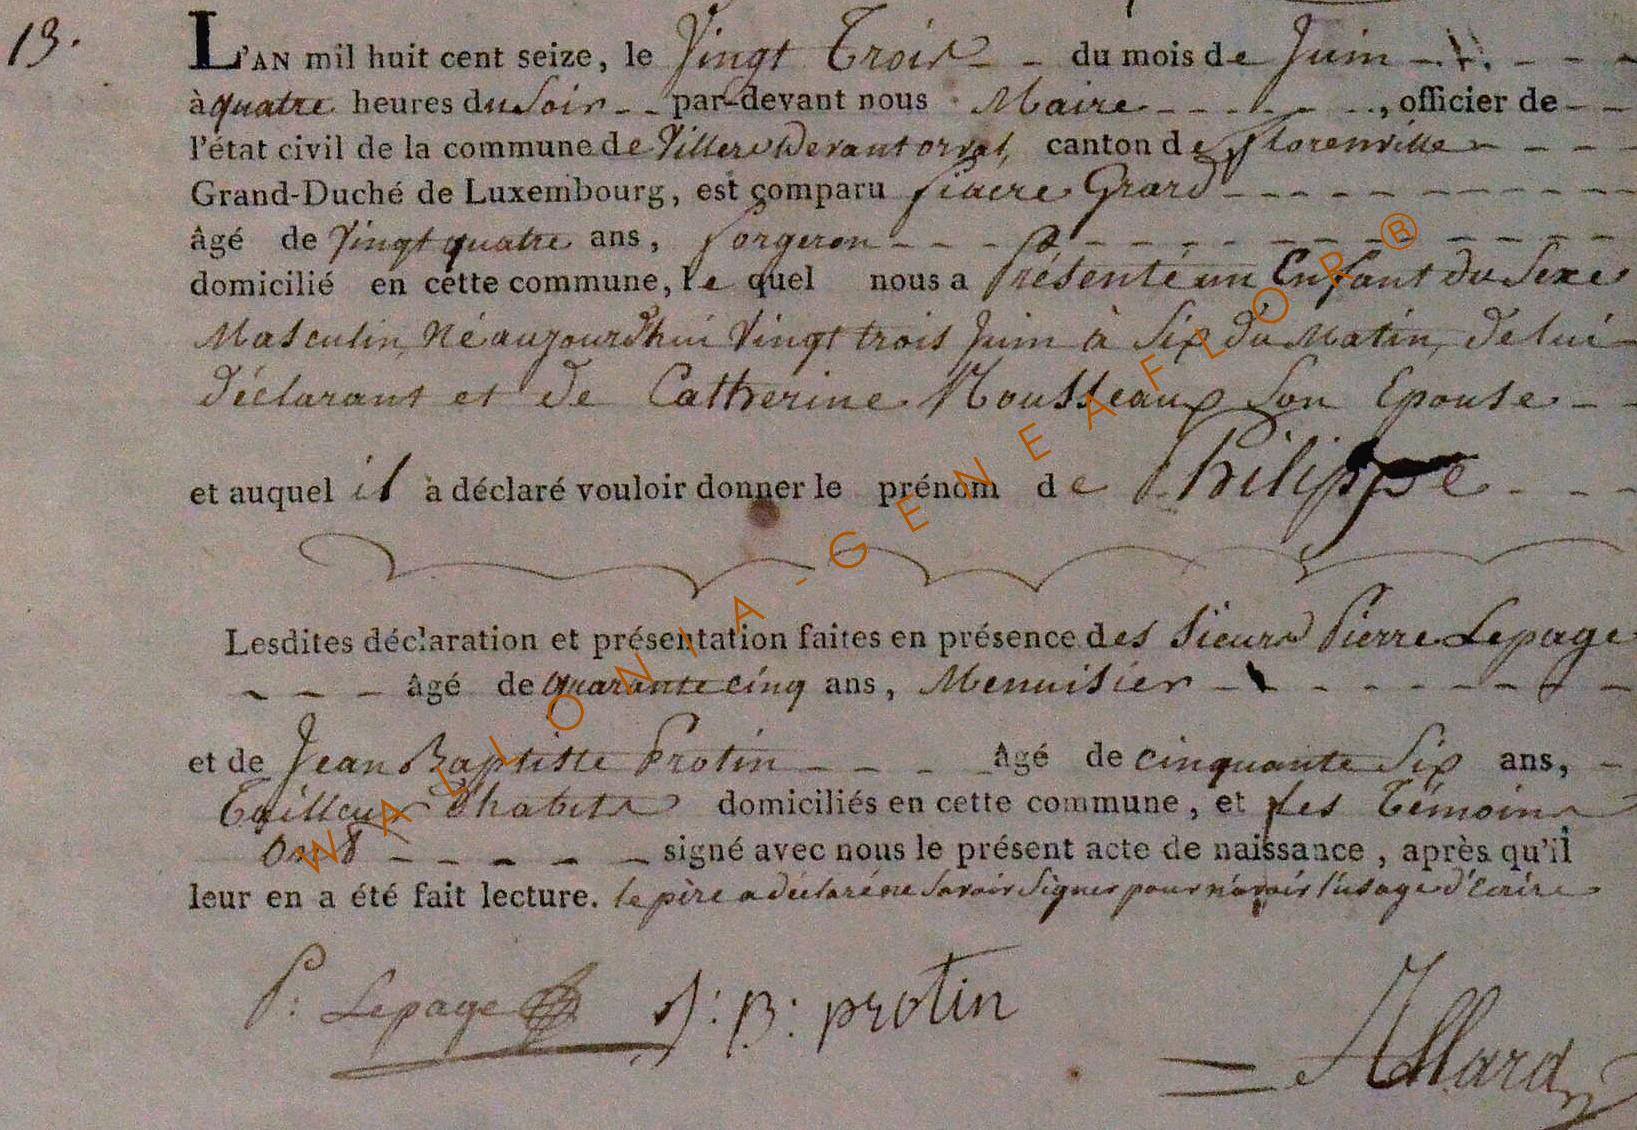 13.
L'AN mil huit cent seize, le Vingt Trois du mois de Juin
à quatre heures du Soir par-devant nous Maire, officier de
l'état civil de la commune de Villers devant orval, canton de florenville
Grand-Duché de Luxembourg, est comparu fiacre Grard
âgé de Vingt quatre ans, forgeron
domicilié en cette commune, le quel nous a Présenté un Enfant du Sexe
Masculin, Né aujourd'hui Vingt trois Juin à Six du Matin, de lui
déclarant et de Catherine Mousseaux Son Epouse
et auquel il a déclaré vouloir donner le prénom de Philippe
Lesdites déclaration et présentation faites en présence des Sieurs Pierre Lepage
âgé de quarante cinq ans, Menuisier
et de Jean Baptiste Protin âgé de cinquante Six ans,
Tailleur d'habits domiciliés en cette commune, et les Témoins
ont signé avec nous le présent acte de naissance, après qu'il
leur en a été fait lecture. le père a déclaré ne Savoir Signer pour n'avoir l'usage d'Ecrire
P: Lepage J: B: protin
Allard
WALLONIA-GENEAFLOR®